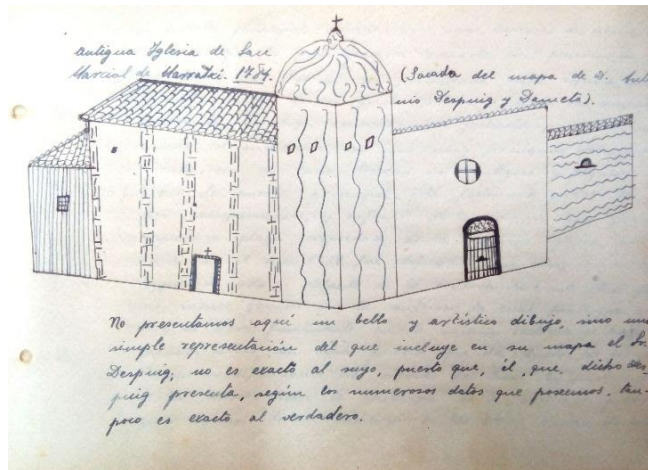 Antigua Iglesia de San
Marcial de Marratxí. 1784.
(Sacada del mapa de D. Anto
nio Despuig y Dameto).
No presentamos aquí un bello y artístico dibujo, sino una
simple representación del que incluye en su mapa el Sr.
Despuig; no es exacto al suyo, puesto que, él, que, dicho Des-
puig presenta, según los numerosos datos que poseemos, tam-
poco es exacto al verdadero.